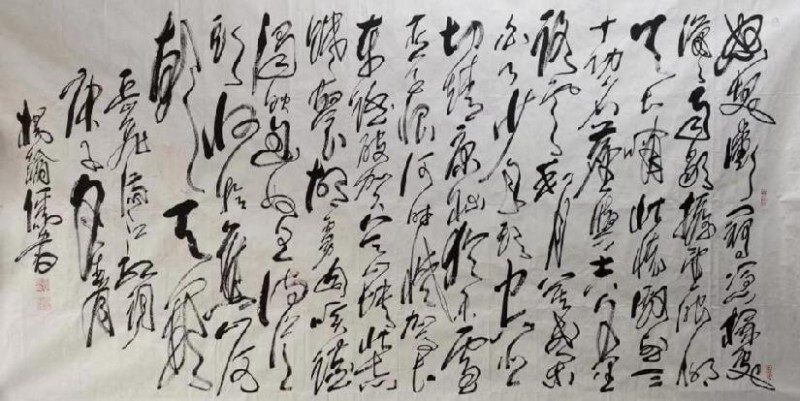 怒髮衝冠憑欄處
瀟瀟雨歇抬望眼仰
天長嘯壯懷激烈三
十功名塵與土八千里
路雲和月莫等閒
白了少年頭空悲
切靖康恥猶未雪
臣子恨何時滅駕長
車踏破賀蘭山缺壯志
飢餐胡虜肉笑談
渴飲匈奴血待從
頭收拾舊山河
朝天闕
岳飛滿江紅詞
庚子
楊翰儒書